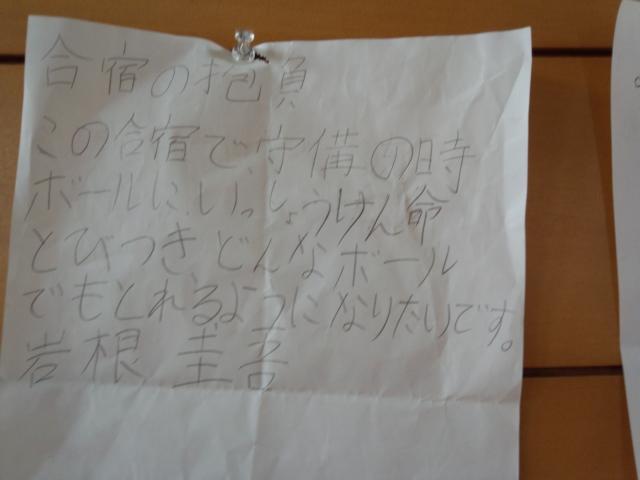 合宿の抱負
この合宿で、守備の時
ボールに、いっしょうけん命
とびつき、どんなボール
でもとれるようになりたいです。
岩根 圭吾